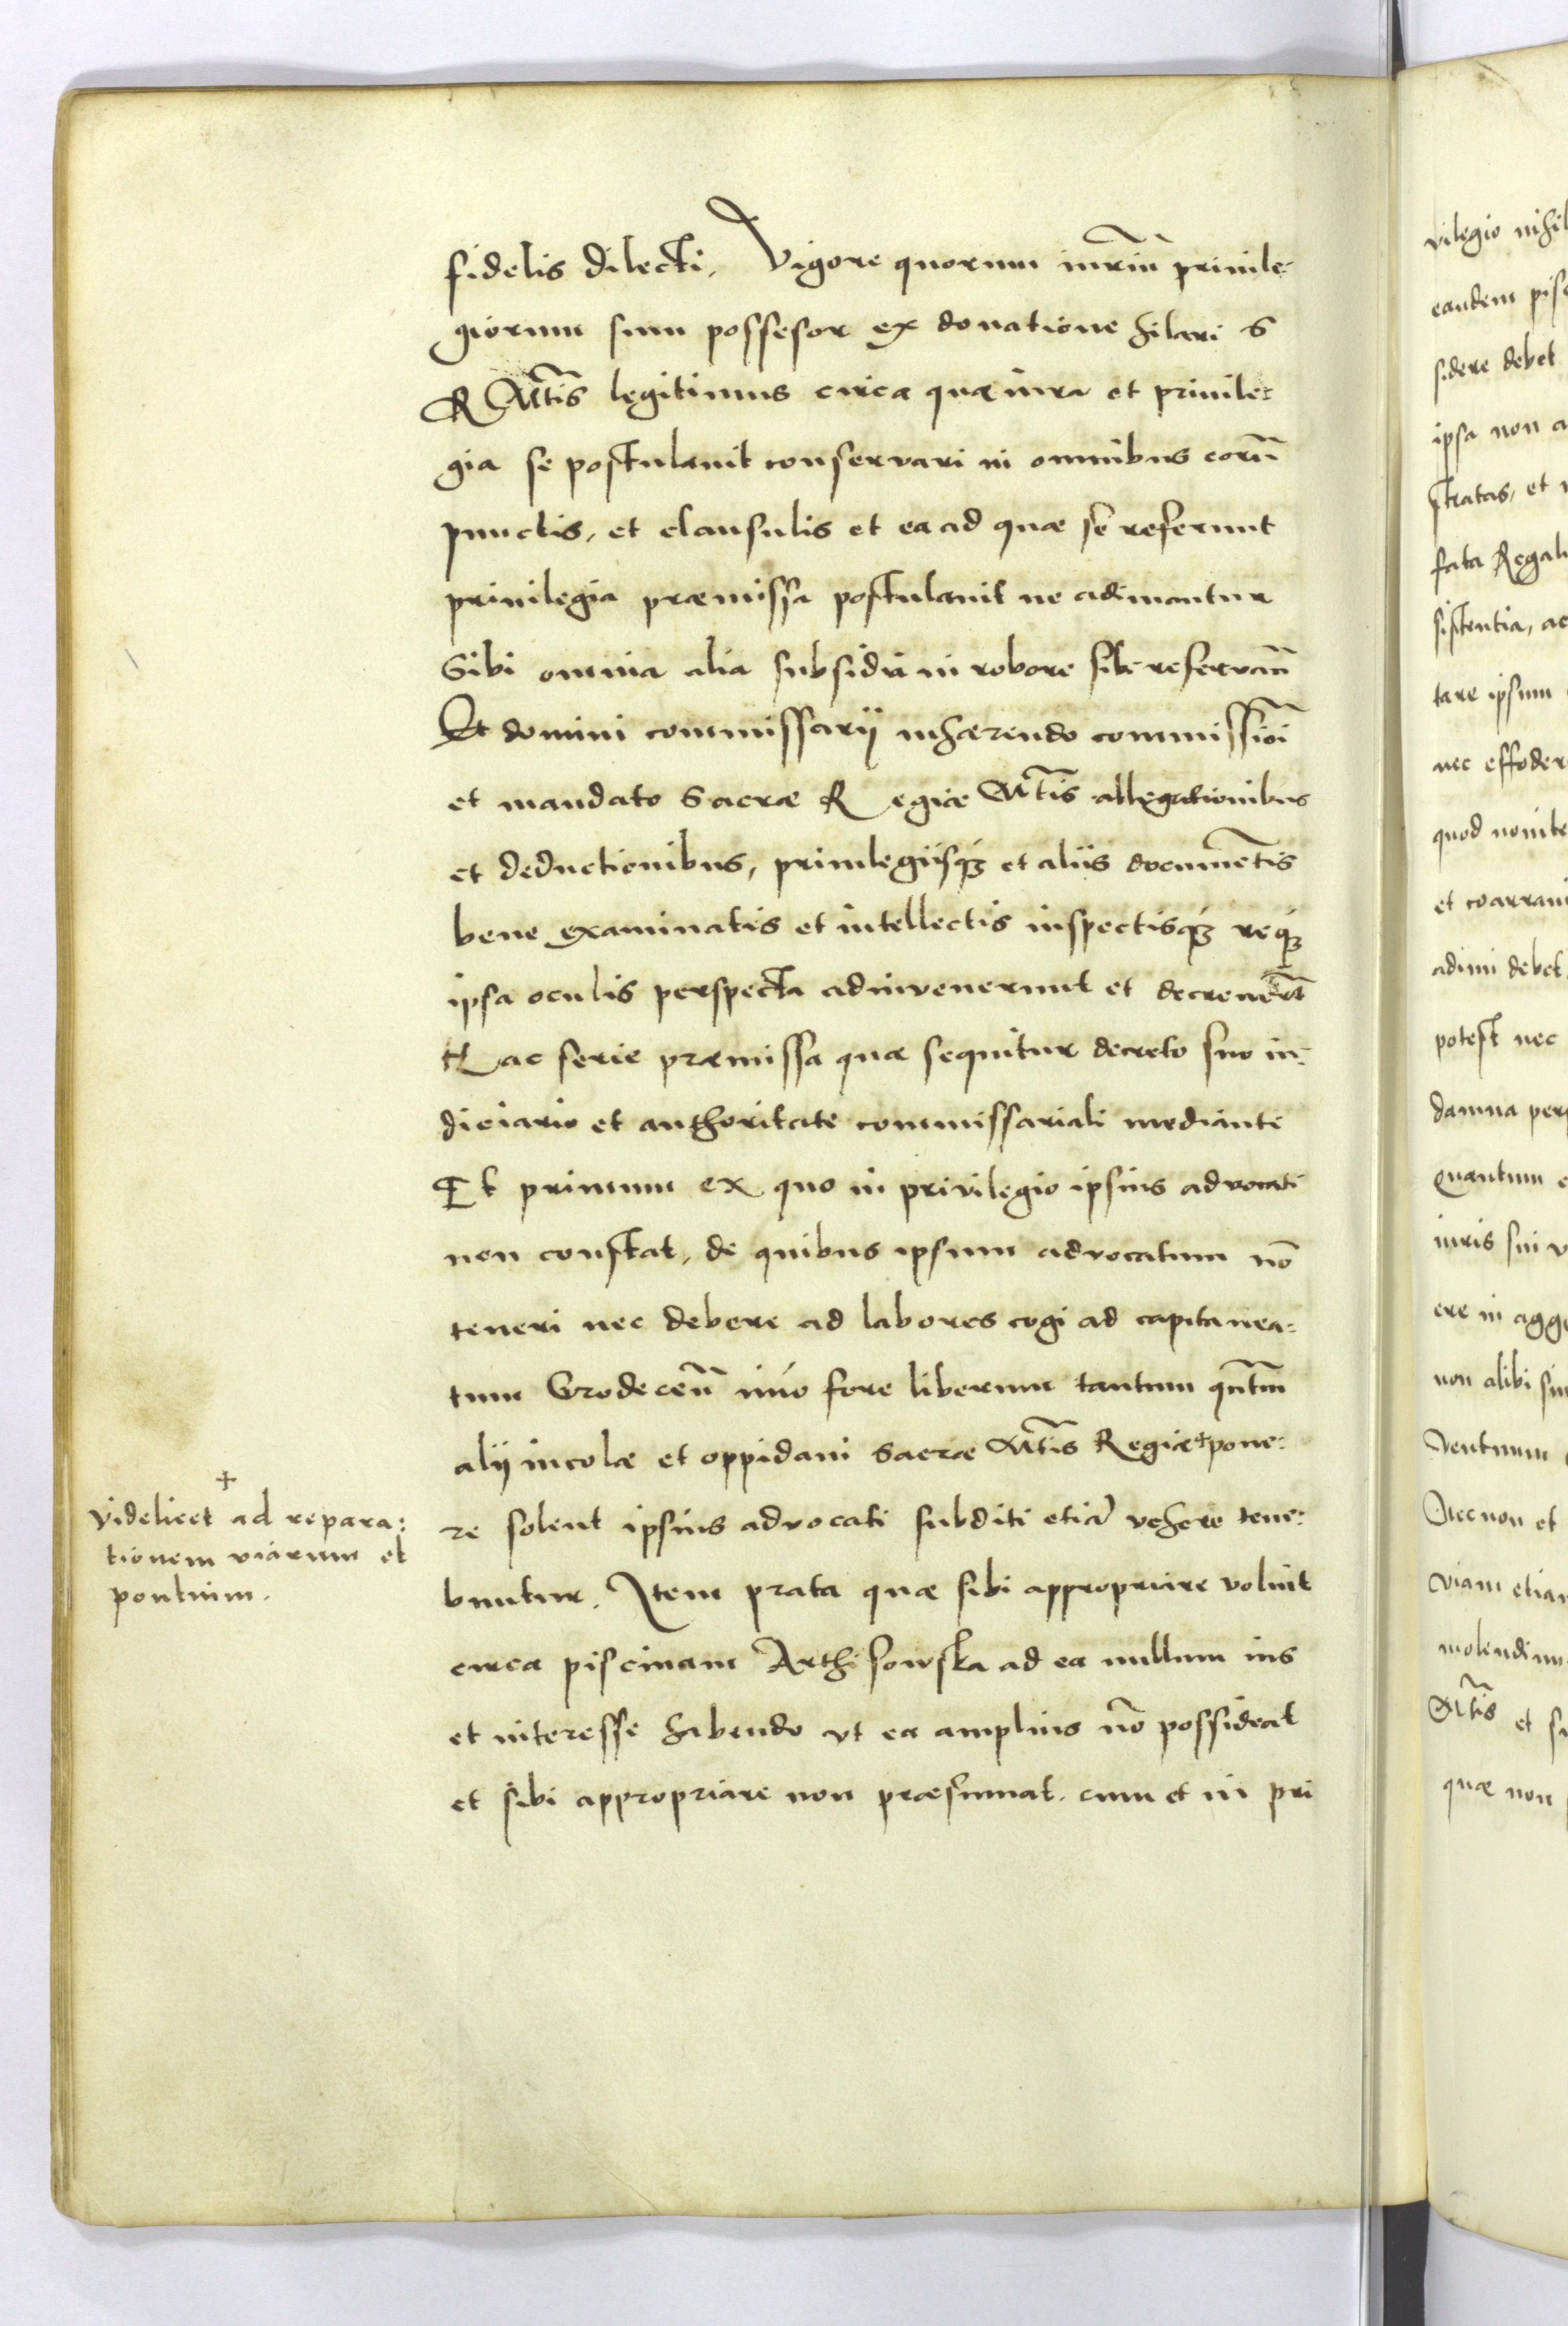 fidelis dilecti, Vigore quorum iuriũ priuile-
giorum sum possesor ex donatione hilari S
R Mtis legitimus circa quæ iura et priuile-
gia se postulauit conservari in omnibus eorũ
punctis, et clausulis et ea ad quæ se referunt
priuilegia præmissa postulauit ne adimantur
Sibi omnia alia subsidia in robore sibi reservañ
Et domini commissarij inhærendo commissioi
et mandato Sacræ Regiæ Mtis allegationibus
et deductionibus, priuilegijsq3 et aliis documẽtis
bene examinatis et intellectis inspectisq3 req3
ipsa oculis perspecta adinvenerunt et decreuert
Hac serie præmissa quæ sequitur decreto suo iu-
diciario et authoritate commissariali mediante
Et primum ex quo in privilegio ipsius advocati
non constat, de quibus ipsum advocatum nõ
teneri nec debere ad labores cogi ad capitanea-
tum Grodeceñ imo fore liberum tantum qntm
alij incolæ et oppidani Sacræ Mtis Regiæ + pone-
re solent ipsius advocati subditi etiã vehere tene-
buntur. Item prata quæ sibi appropriare voluit
circa piscinam Arthisowska ad ea nullum ius
et interesse habendo vt ea amplius nõ possideat
et sibi appropriare non præsumat. cum et in pri
+
videlicet ad repara:
tionem viarum et
pontium.
vilegio nihil
eandem
sidere debet
ipsa non
stratas, et
fata
sistentia,
tare ipsum
nec
quod
et
adimi debet
potest nec
damna
quantum
iuris sui
ere in
non alibi
Necnon et
viam
Mtis et
quæ non